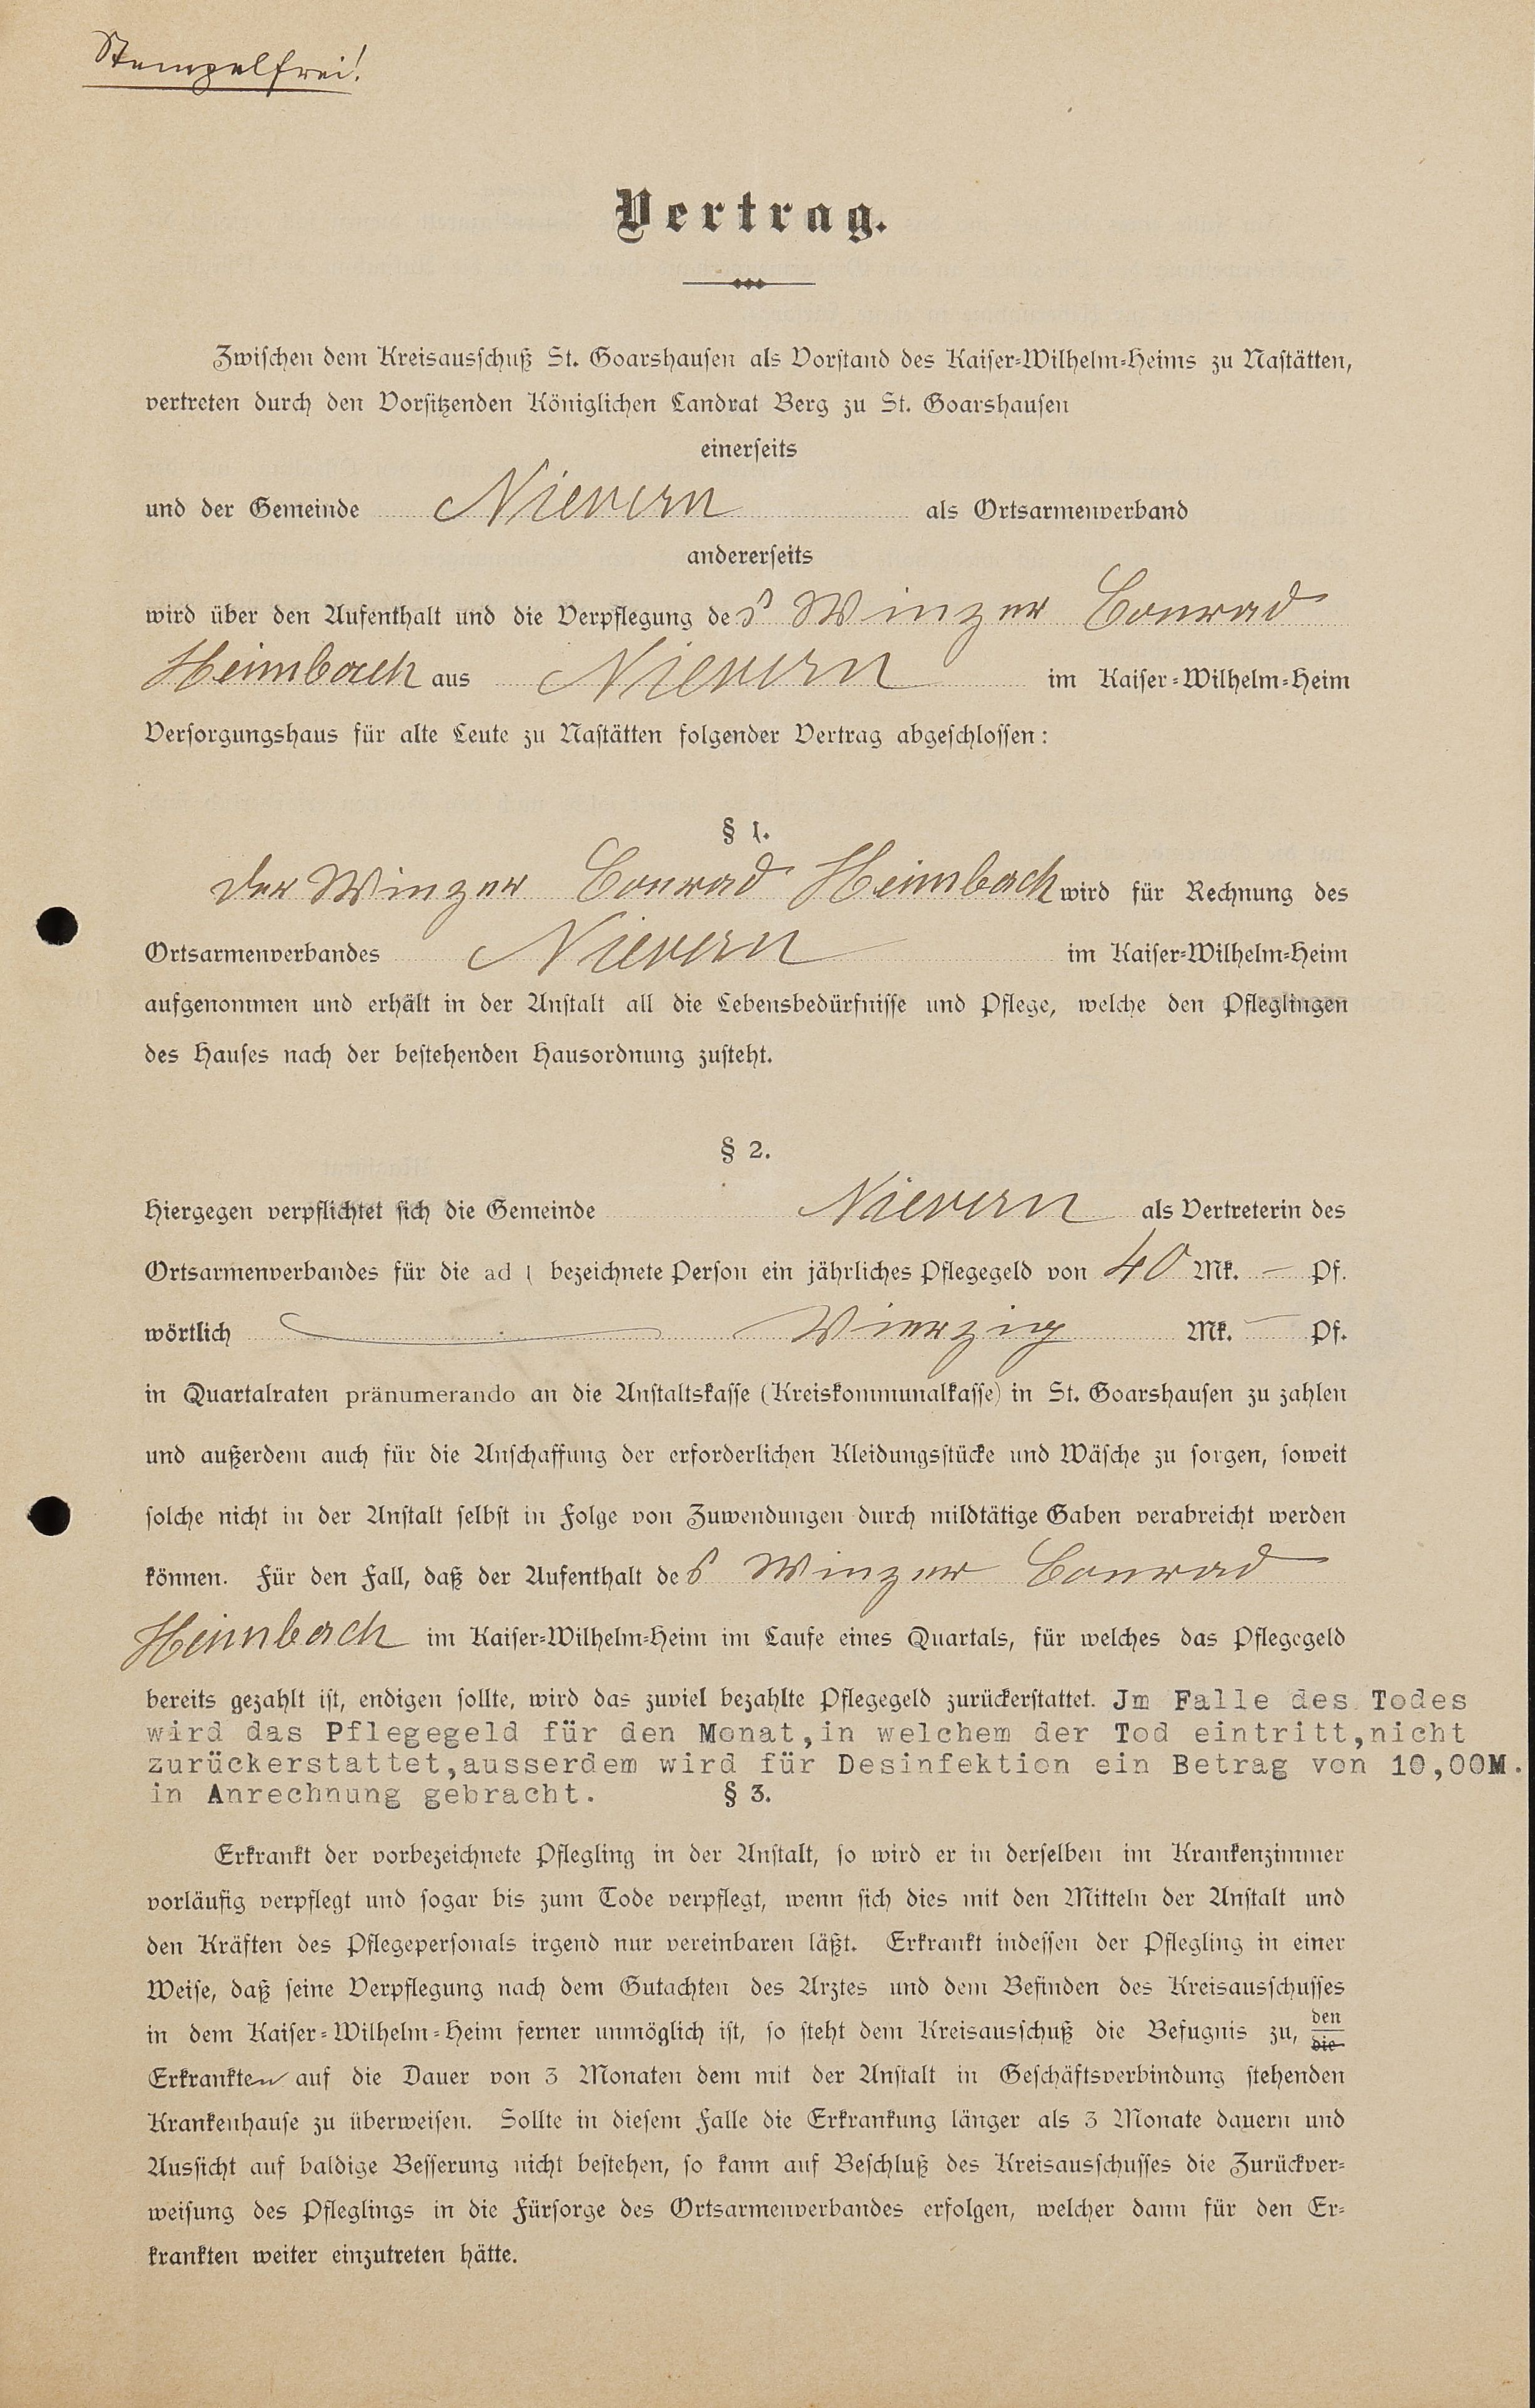 Stempelfrei!
Vertrag.
Zwischen dem Kreisausschuß St. Goarshausen als Vorstand des Kaiser-Wilhelm-Heims zu Nastätten,
vertreten durch den Vorsitzenden Königlichen Landrat Berg zu St. Goarshausen
einerseits
und der Gemeinde Nievern als Ortsarmenverband
andererseits
wird über den Aufenthalt und die Verpflegung des Winzer Conrad
Heimbach aus Nievern im Kaiser-Wilhelm-Heim
Versorgungshaus für alte Leute zu Nastätten folgender Vertrag abgeschlossen:
§ 1.
Der Winzer Conrad Heimbach wird für Rechnung des
Ortsarmenverbandes Nievern im Kaiser-Wilhelm-Heim
aufgenommen und erhält in der Anstalt all die Lebensbedürfnisse und Pflege, welche den Pfleglingen
des Hauses nach der bestehenden Hausordnung zusteht.
§ 2.
Hiergegen verpflichtet sich die Gemeinde Nievern als Vertreterin des
Ortsarmenverbandes für die ad 1 bezeichnete Person ein jährliches Pflegegeld von 40 Mk. — Pf.
wörtlich Vierzig Mk. — Pf.
in Quartalraten pränumerando an die Anstaltskasse (Kreiskommunalkasse) in St. Goarshausen zu zahlen
und außerdem auch für die Anschaffung der erforderlichen Kleidungsstücke und Wäsche zu sorgen, soweit
solche nicht in der Anstalt selbst in Folge von Zuwendungen durch mildtätige Gaben verabreicht werden
können. Für den Fall, daß der Aufenthalt des Winzer Conrad
Heimbach im Kaiser-Wilhelm-Heim im Laufe eines Quartals, für welches das Pflegegeld
bereits gezahlt ist, endigen sollte, wird das zuviel bezahlte Pflegegeld zurückerstattet. Jm Falle des Todes
wird das Pflegegeld für den Monat,in welchem der Tod eintritt,nicht
zurückerstattet,ausserdem wird für Desinfektion ein Betrag von 10,00M.
in Anrechnung gebracht. § 3.
Erkrankt der vorbezeichnete Pflegling in der Anstalt, so wird er in derselben im Krankenzimmer
vorläufig verpflegt und sogar bis zum Tode verpflegt, wenn sich dies mit den Mitteln der Anstalt und
den Kräften des Pflegepersonals irgend nur vereinbaren läßt. Erkrankt indessen der Pflegling in einer
Weise, daß seine Verpflegung nach dem Gutachten des Arztes und dem Befinden des Kreisausschusses
in dem Kaiser-Wilhelm-Heim ferner unmöglich ist, so steht dem Kreisausschuß die Befugnis zu, den die
Erkrankten auf die Dauer von 3 Monaten dem mit der Anstalt in Geschäftsverbindung stehenden
Krankenhause zu überweisen. Sollte in diesem Falle die Erkrankung länger als 3 Monate dauern und
Aussicht auf baldige Besserung nicht bestehen, so kann auf Beschluß des Kreisausschusses die Zurückver-
weisung des Pfleglings in die Fürsorge des Ortsarmenverbandes erfolgen, welcher dann für den Er-
krankten weiter einzutreten hätte.